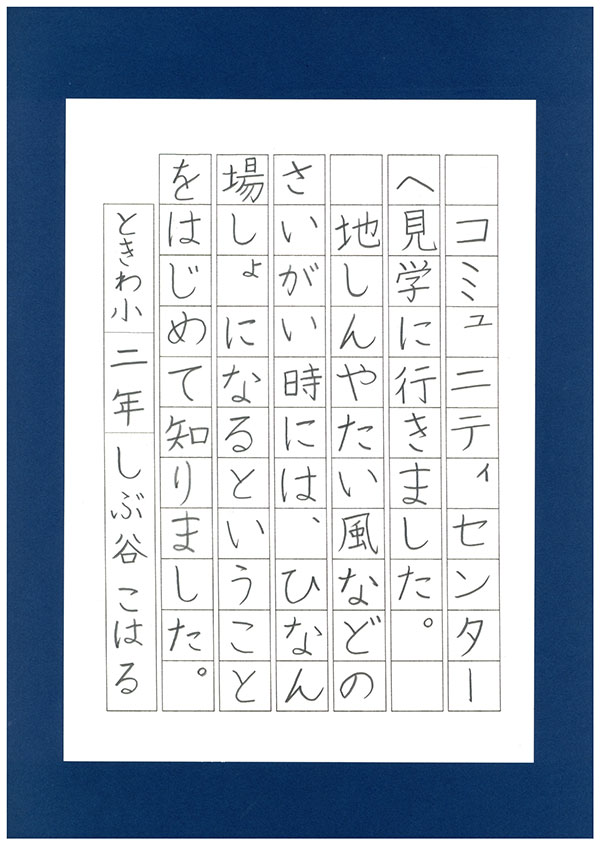 コミュニティセンター
へ見学に行きました。
地しんやたい風などの
さいがい時には、ひなん
場しょになるということ
をはじめて知りました。
ときわ小 二年 しぶ谷 こはる